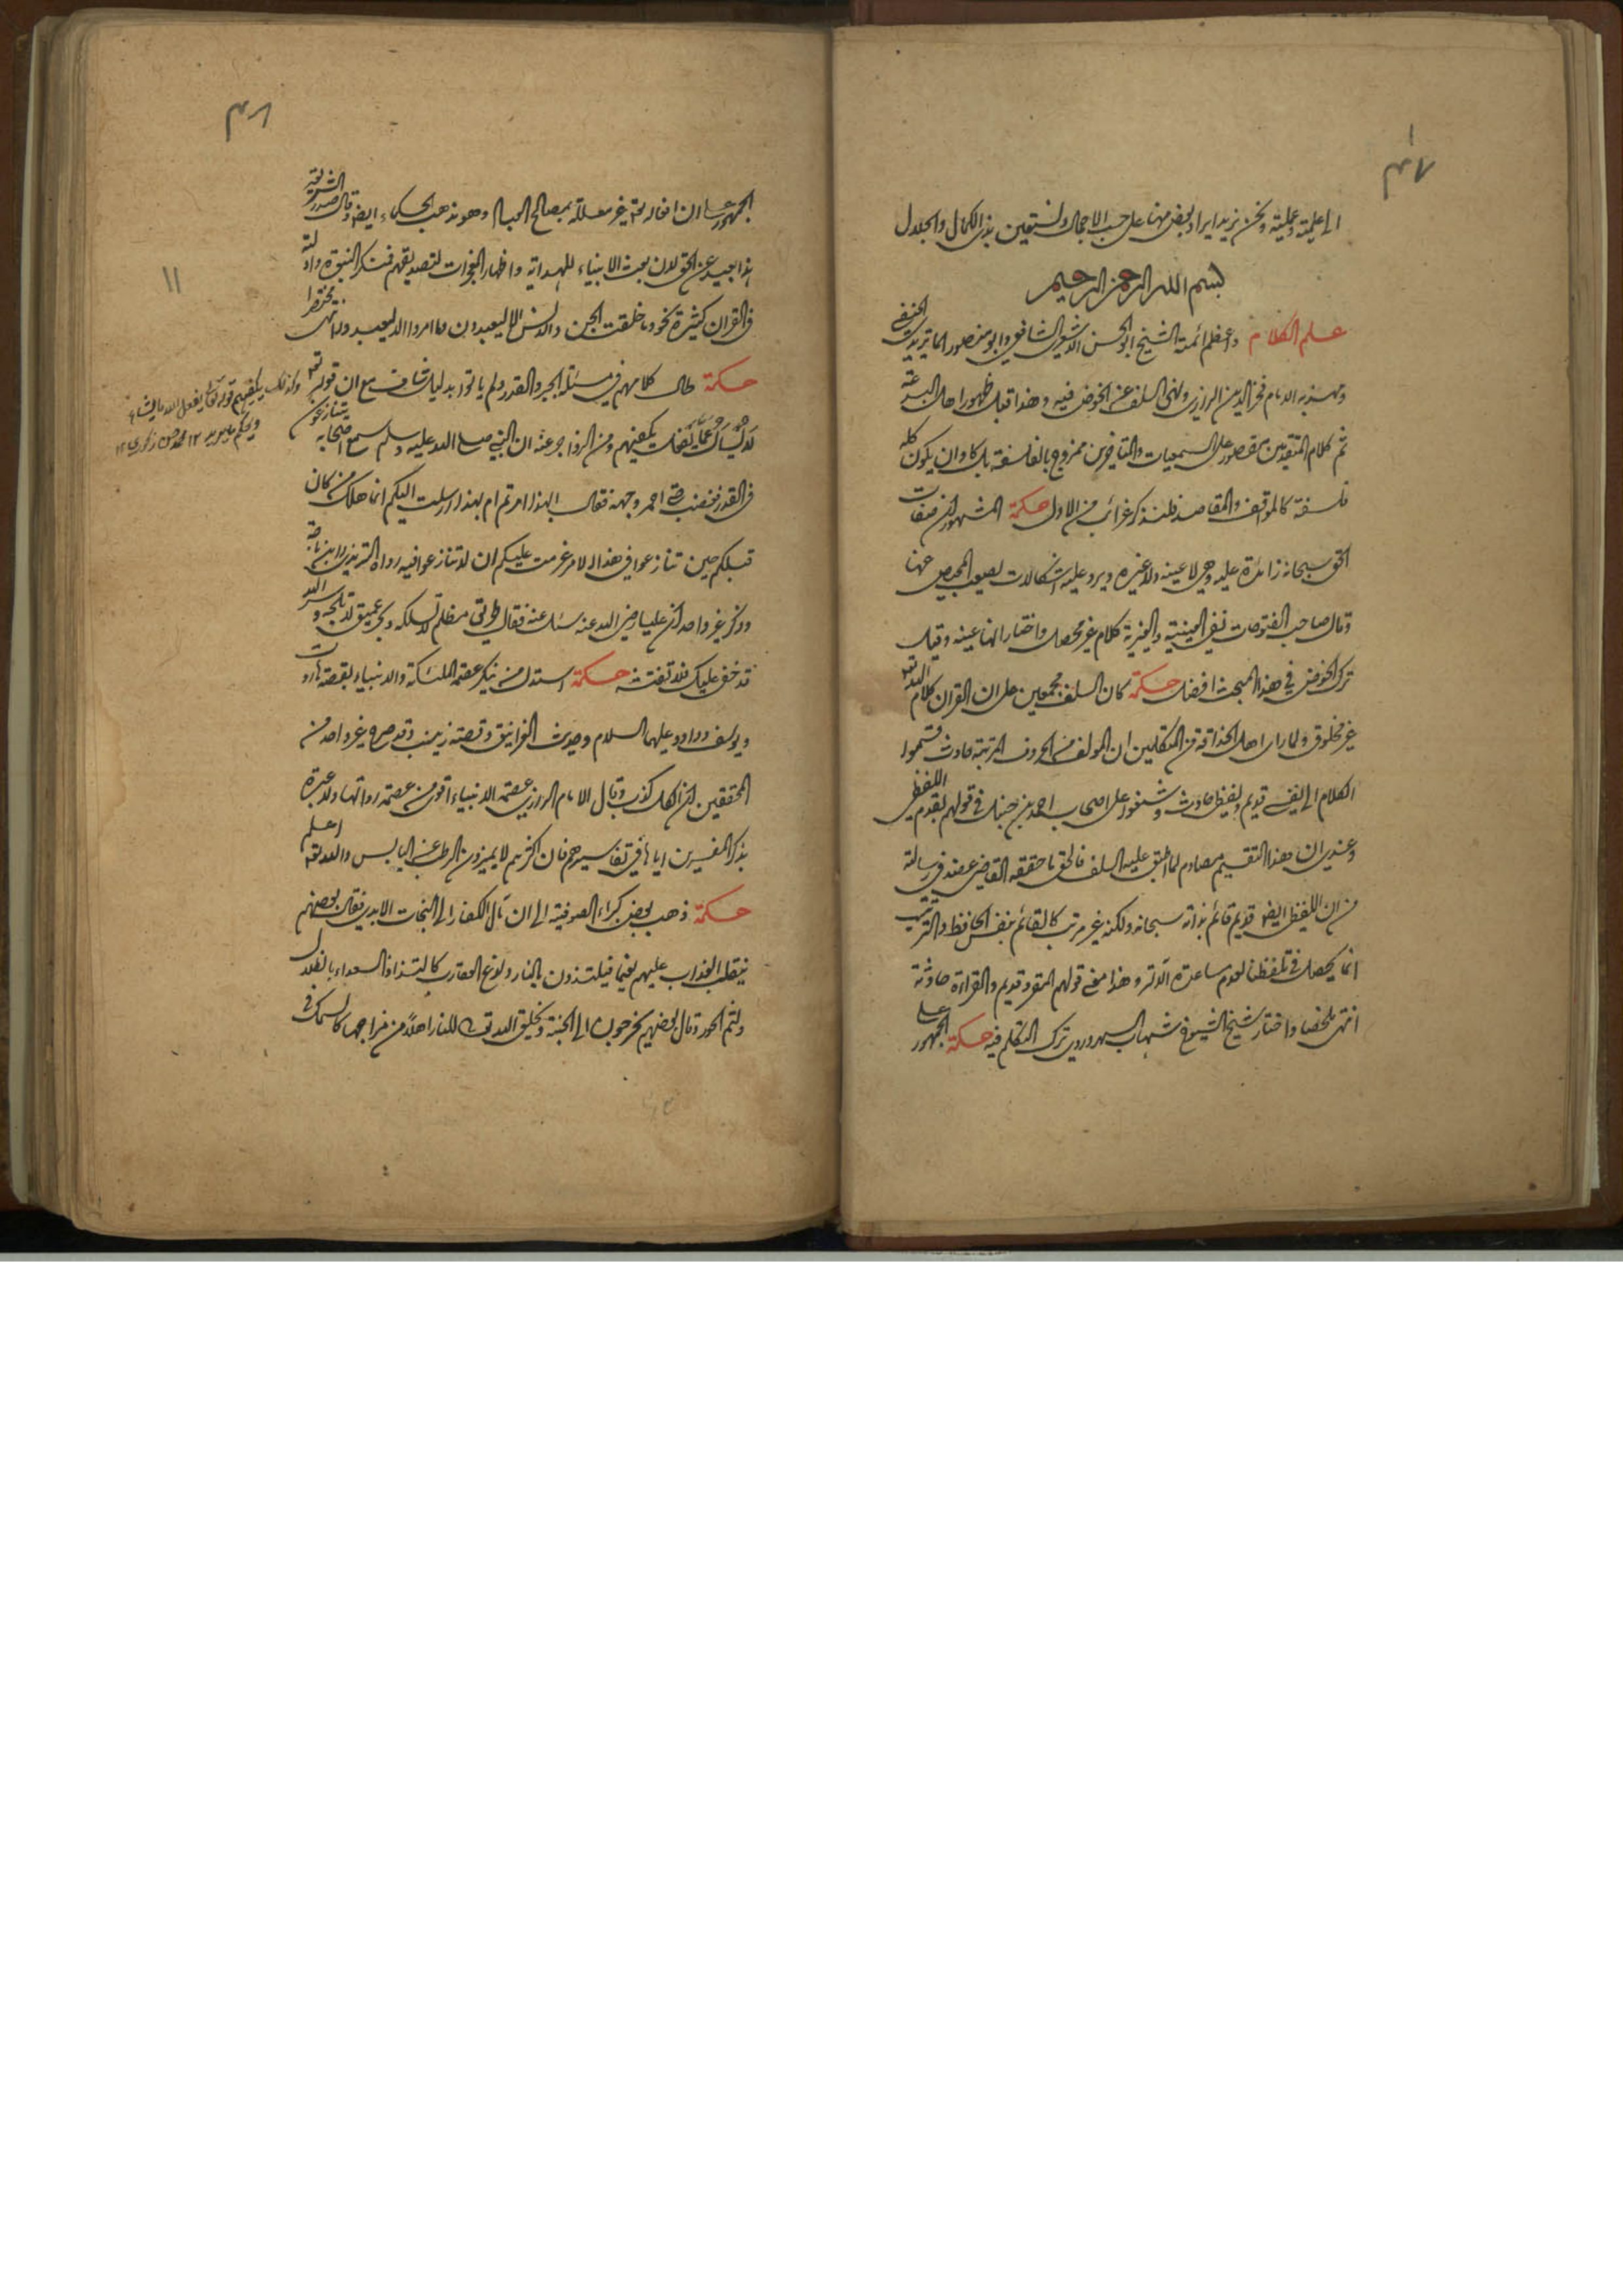 الى علمية وعملية ونحن نريد ايراد بعض منها على حسب الاجمال ونستعين بذي الكمال والجلال
بسم الله الرحمن الرحيم
علم الكلام واعظم ائمته الشيخ ابو الحسن الاشعري الشافعي وابو منصور الماتريدي الحنفي
ومهذبه الامام فخر الدين الرازي ونهى السلف عن الخوض فيه وهذا قبل ظهور اهل البدعة
ثم كلام المتقدمين مقصور على السمعيات والمتأخرين ممزوج بالفلسفة بل كاد ان يكون كله
فلسفة كالمواقف والمقاصد فلنذكر غرائب من الاول حكمة المشهور ان صفات
الحق سبحانه زائدة عليه وهي لا عينه ولا غيره ويرد عليه اشكالات يصعب المحيص عنها
وقال صاحب الفتوحات نفي العينية والغيرية كلام غير محصل واختار انها عينه وقيل
ترك الخوض في هذا المبحث افضل حكمة كان السلف مجمعين على ان القران كلام الله تعه
غير مخلوق ولما راى اهل الحذاقة من المتكلمين ان المولف من الحروف المرتبة حادث قسموا
الكلام الى نفسي قديم ولفظي حادث وشنعوا على اصحاب احمد بن حنبل في قولهم بقدم اللفظ
وعندي ان هذا التقسيم مصادم لما اطبق عليه السلف فالحق ما حققه القاضي عضد في رسالة
من ان اللفظ ايض قديم قائم بذاته سبحانه ولكنه غير مرتب كالقائم بنفس الحافظ والترتيب
انما يحصل في تلفظنا لعدم مساعدة الالة وهذا معنى قولهم المقرو قديم والقراءة حادثة
انتهى ملخصا واختار شيخ الشيوخ شهاب السهروردي ترك التكلم فيه حكمة الجمهور على
الجمهور على ان افعاله تعه غير معللة بمصالح العباد وهو مذهب الحكماء ايض وقال صدر الشريعة
هذا بعيد عن الحق لان بعث الانبياء للهداية واظهار المعجزات لتصديقهم فمنكره منكر النبوة وادلته
في القران كثيرة نحو وما خلقت الجن والانس الا ليعبدون وما امروا الا ليعبدوا انتهى مختصرا
حكمة طال كلامهم في مسئلة الجبر والقدر ولم ياتوا بدليل شاف مع ان قوله تعه
لا يسأل عما يفعل يكفيهم ومن الزواجر عنه ان النبي صلى الله عليه وسلم سمع اصحابه يتنازعون
في القدر فغضب حتى احمر وجهه فقال ابهذا امرتم ام بهذا ارسلت اليكم انما هلك من كان
قبلكم حين تنازعوا في هذا الامر عزمت عليكم ان لا تنازعوا فيه رواه الترمذي وابن ماجة
وذكر غير واحد ان عليا رضي الله عنه سئل عنه فقال طريق مظلم لا تسلكه وبحر عميق لا تلجه وسر الله
قد خفي عليك فلا تفتشه حكمة استدل من ينكر عصمة الملئكة والانبياء بقصة هاروت
ويوسف وداود عليهما السلام وحديث الغرانيق وقصة زينب وقد صرح غير واحد من
المحققين ان الكل كذب وقال الامام الرازي عصمة الانبياء اقوى من عصمة رواتها ولا عبرة
بذكر المفسرين اياها في تفاسيرهم فان اكثرهم لا يميزون الرطب عن اليابس والله تعه اعلم
حكمة ذهب بعض كبراء الصوفية الى ان مآل الكفار الى النجات الابدي فقال بعضهم
ينقلب العذاب عليهم نعيما فيلتذون بالنار ولدغ العقارب كالتذاذ السعداء بالظلال
ولثم الحور وقال بعضهم يخرجون الى الجنة ويخلق الله تعالى للنار اهلا من مزاجها كالسمك في
وكذلك يكفيهم قوله تعالى يفعل الله ما يشاء
ويحكم ما يريد ١٢
١١